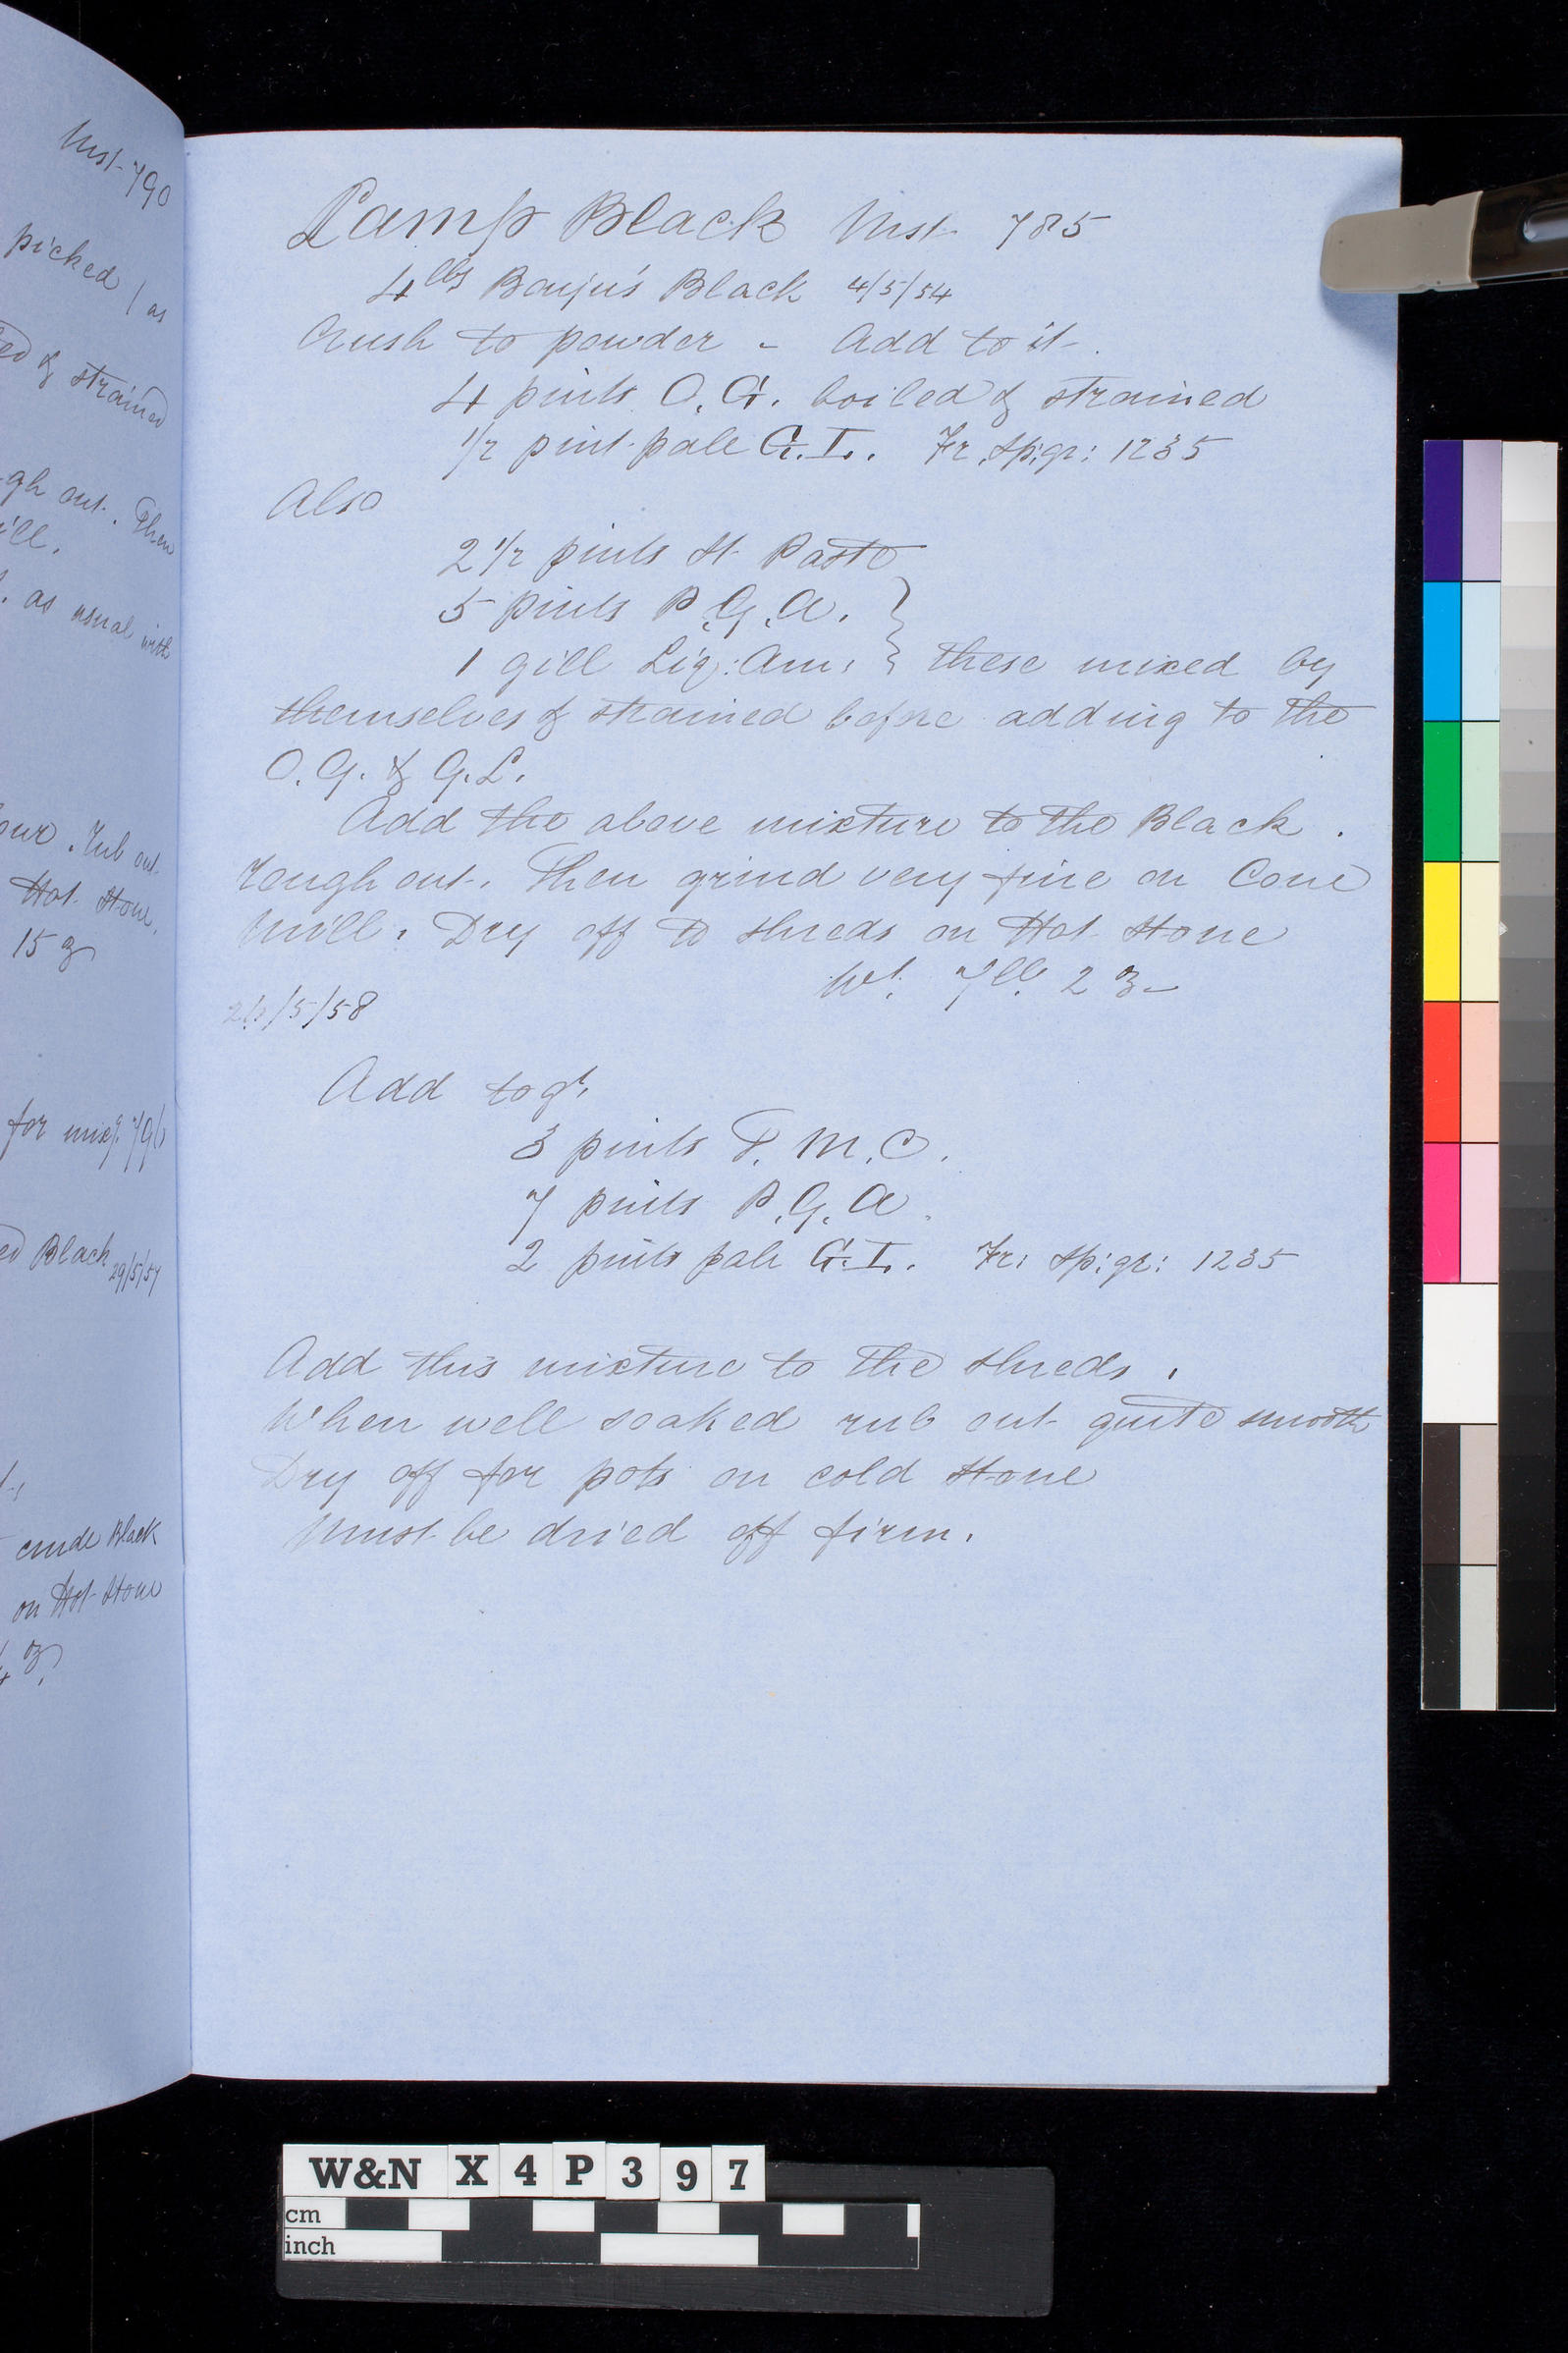 Mst- 790
picked / as
ed & strained
gh out. Then
ill.
. as usual with
our. Rub out
Hot Stone.
15 oz
for mixg. 790
ed Black 29/5/57
crude Black
on Hot Stone
oz
Lamp Black Mst- 785
4 lbs Bouju's Black 4/5/54
Crush to powder - Add to it-.
4 pints O.G. boiled & strained
1/2 pint pale G.L. Fr. Sp:gr: 1235
Also
2 1/2 pints St. Paste
5 pints P.G.A. }
1 gill Liq: Am: } these mixed by
themselves & strained before adding to the
O.G. & G.L.
Add the above mixture to the Black.
Rough out. Then grind very fine on Cone
Mill. Dry off to shreds on Hot Stone
Wt. 7 lb. 2 oz
/5/58
Add togr.
3 pints T.M.C.
7 pints P.G.A.
2 pints pale G.L. Fr: Sp:gr: 1235
Add this mixture to the shreds.
When well soaked rub out quite smooth
Dry off for pots on cold Stone
Must be dried off firm.
W&N X 4 P 3 9 7
cm
inch